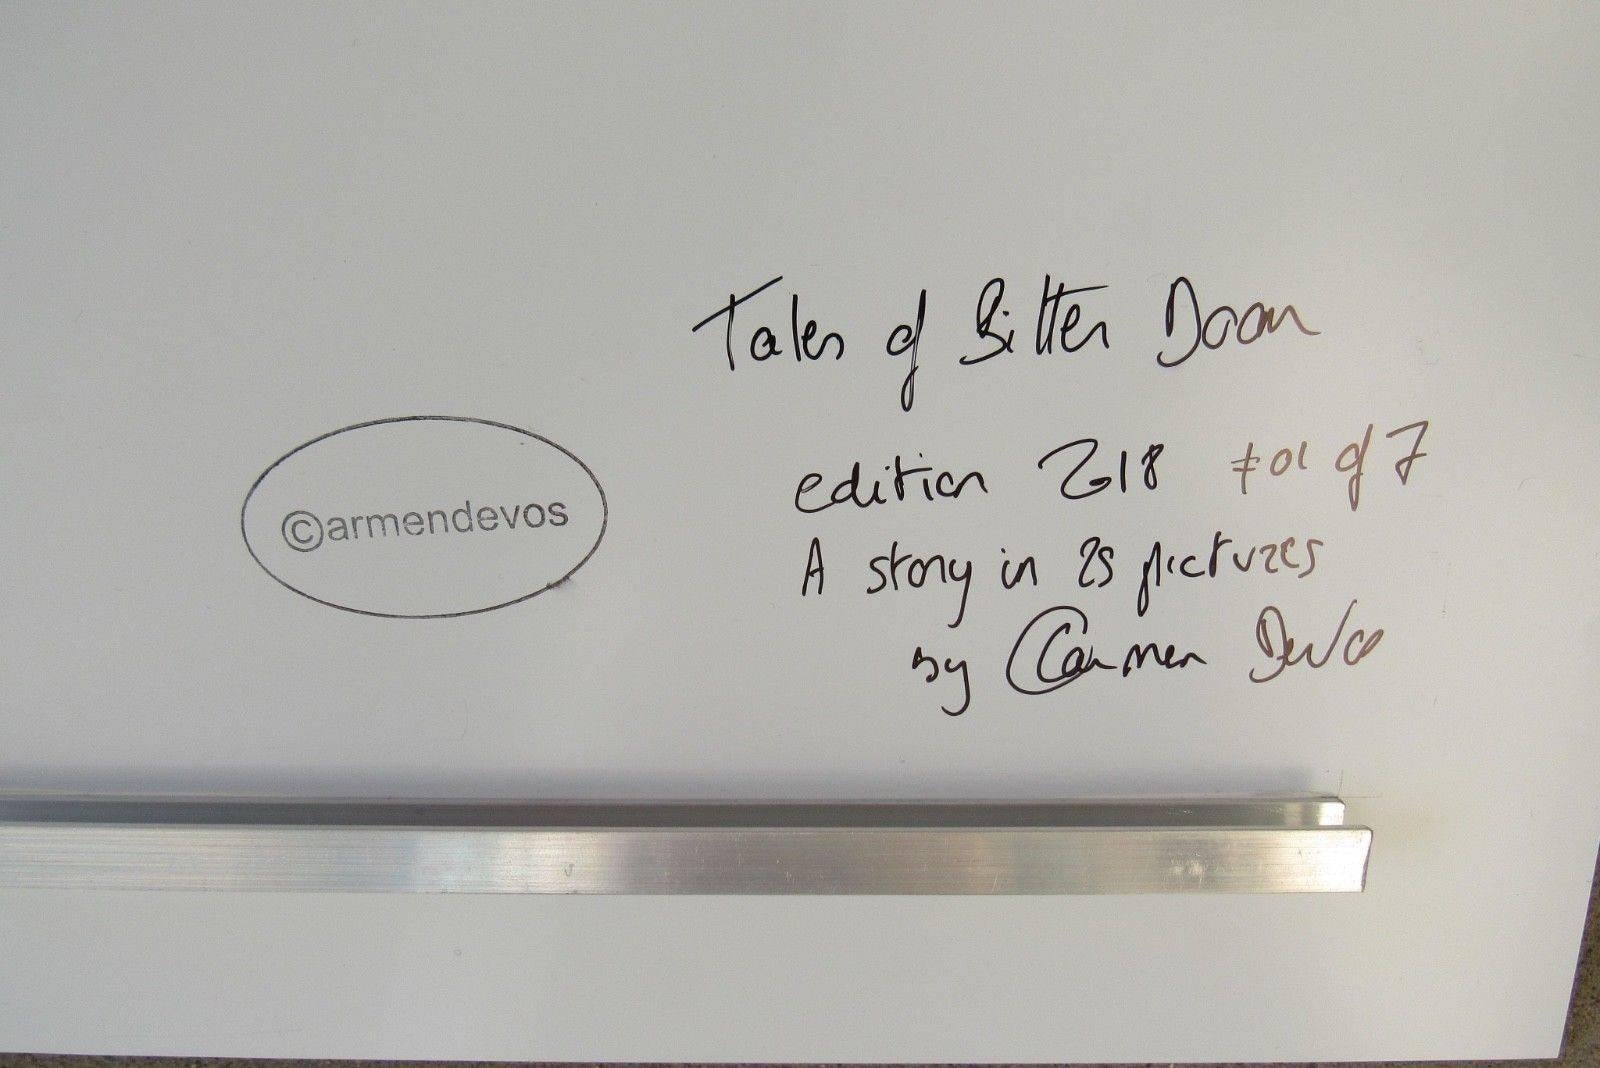 Tales of Bitter Doom
edition 2018 #01 of 7
©armendevos
A story in 25 pictures
by Carmen DeVos